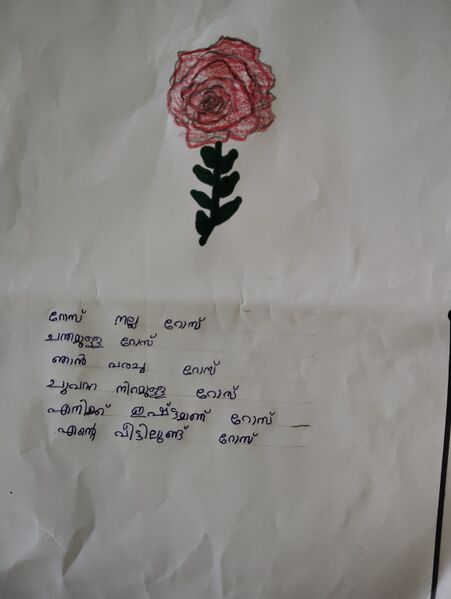 റോസ് നല്ല റോസ്
ചന്തമുള്ള റോസ്
ഞാൻ പരച്ച റോസ്
ചുവന്ന നിറമുള്ള റോസ്
എനിക്ക് ഇഷ്ടമാണ് റോസ്
എന്റെ വീട്ടിലുണ്ട് റോസ്